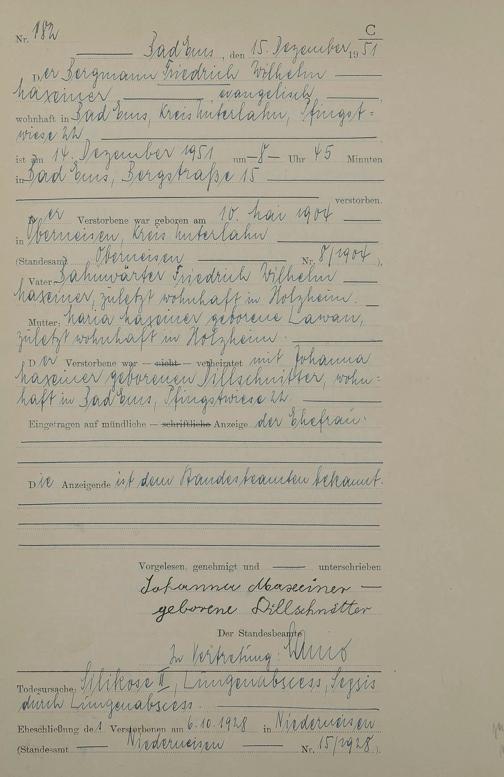 C
Nr. 182
Bad Ems, den 15. Dezember 1951
Der Bergmann Friedrich Wilhelm
Maxeiner evangelisch,
wohnhaft in Bad Ems, Kreis Unterlahn, Pfingst=
wiese 22
ist am 14. Dezember 1951 um 8 Uhr 45 Minuten
in Bad Ems, Bergstraße 15
verstorben.
Der Verstorbene war geboren am 10. Mai 1904
in Oberneisen, Kreis Unterlahn
(Standesamt Oberneisen Nr. 8/1904).
Vater: Bahnwärter Friedrich Wilhelm
Maxeiner, zuletzt wohnhaft in Holzheim.
Mutter: Maria Maxeiner geborene Lawan,
zuletzt wohnhaft in Holzheim.
Der Verstorbene war — nicht — verheiratet mit Johanna
Maxeiner geborenen Dillschnitter, wohn=
haft in Bad Ems, Pfingstwiese 22.
Eingetragen auf mündliche — schriftliche Anzeige der Ehefrau.
Die Anzeigende ist dem Standesbeamten bekannt.
Vorgelesen, genehmigt und unterschrieben
Johanna Maxeiner
geborene Dillschnitter
Der Standesbeamte
In Vertretung:
Todesursache: Silikose II, Lungenabscess, Sepsis
durch Lungenabscess.
Eheschließung des Verstorbenen am 6.10.1928 in Niederneisen
(Standesamt Niederneisen Nr. 15/1928).